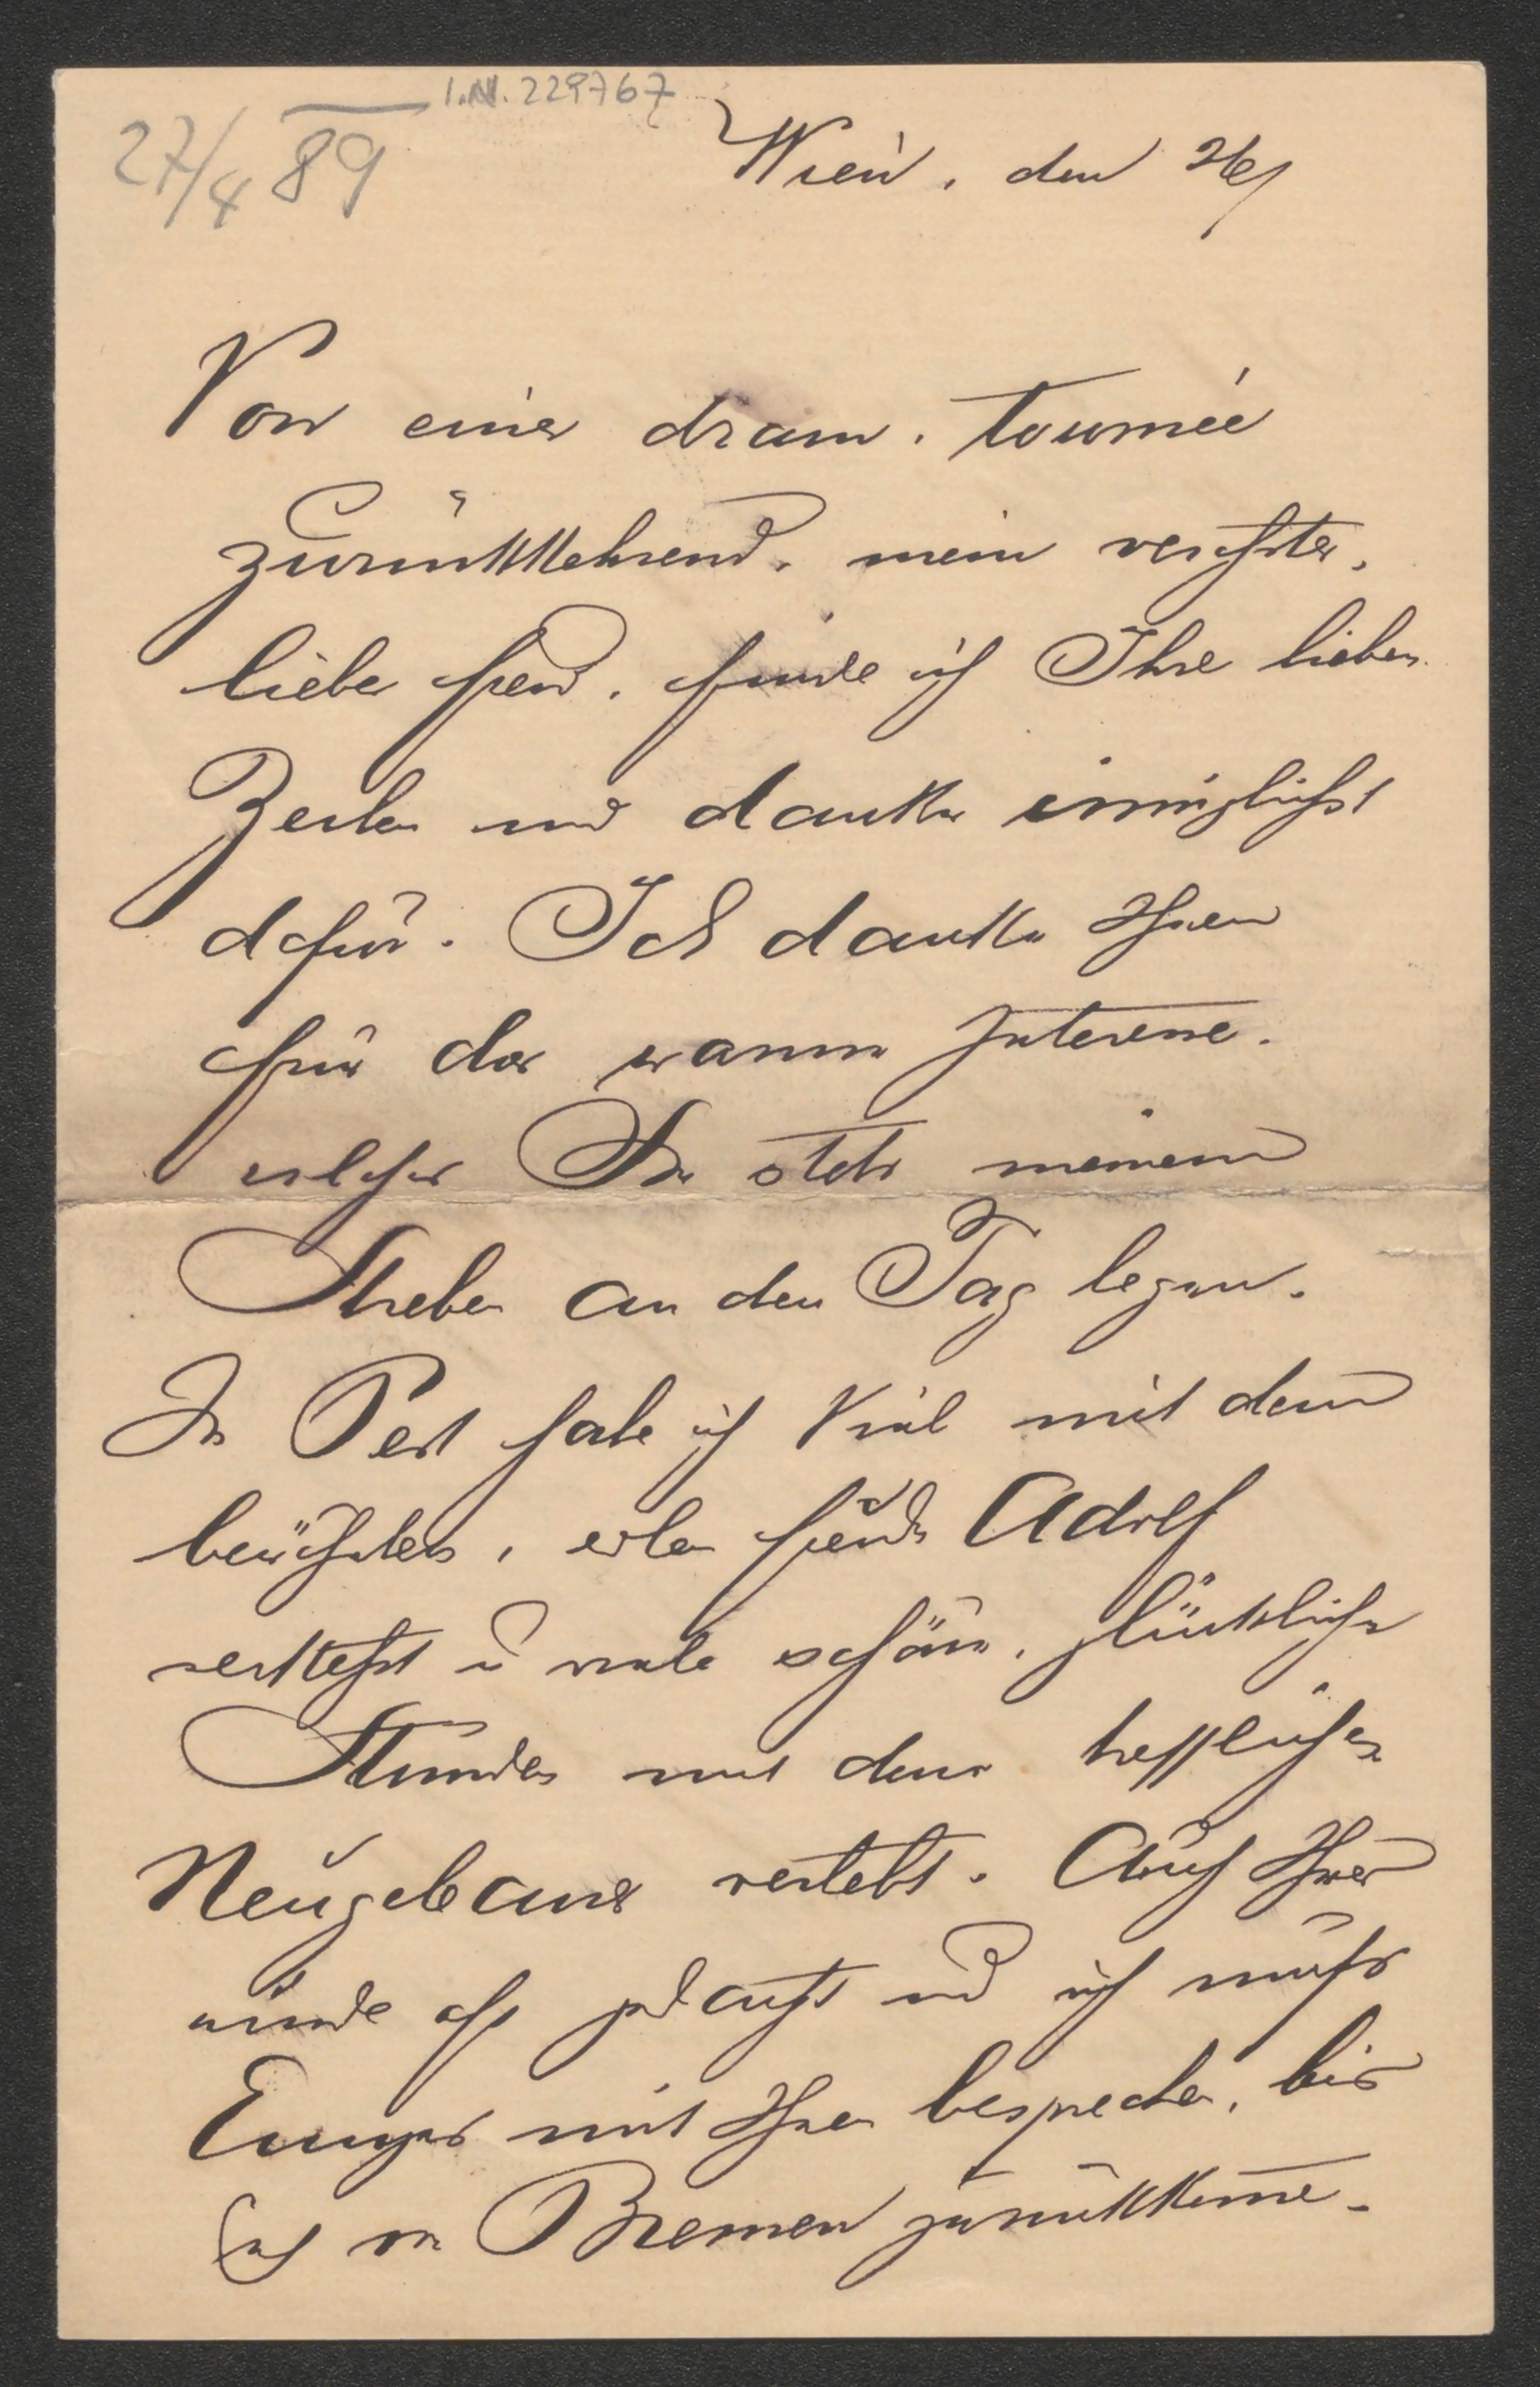 I.N. 229767
27/4 89
Wien, den 26/
Von einer dram. tournée
zurückkehrend, mein verehrter,
lieber Freund, finde ich Ihre lieben
Zeilen und danke inniglichst
dafür. Ich danke Ihnen
für das warme Interesse,
welches Sie stets meinem
Streben an den Tag legen.
In Pest habe ich viel mit dem
berühmten, edlen Freunde Adolf
verkehrt u viele schöne, glückliche
Stunden mit dem trefflichen
Neugebauer verlebt. Auch Ihrer
wurde oft gedacht und ich muß
Einiges mit Ihnen besprechen, bis
ich von Bremen zurückkomme.